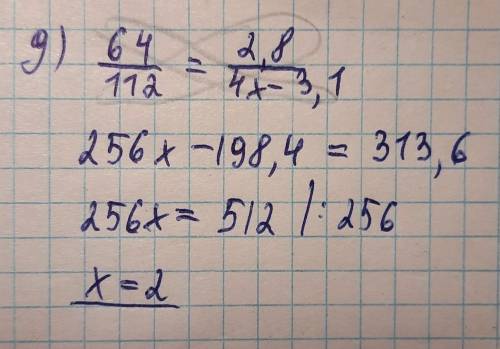 9) 64/112 = 2,8/4x-3,1
256x -198,4 = 313,6
256x = 512 /: 256
x = 2